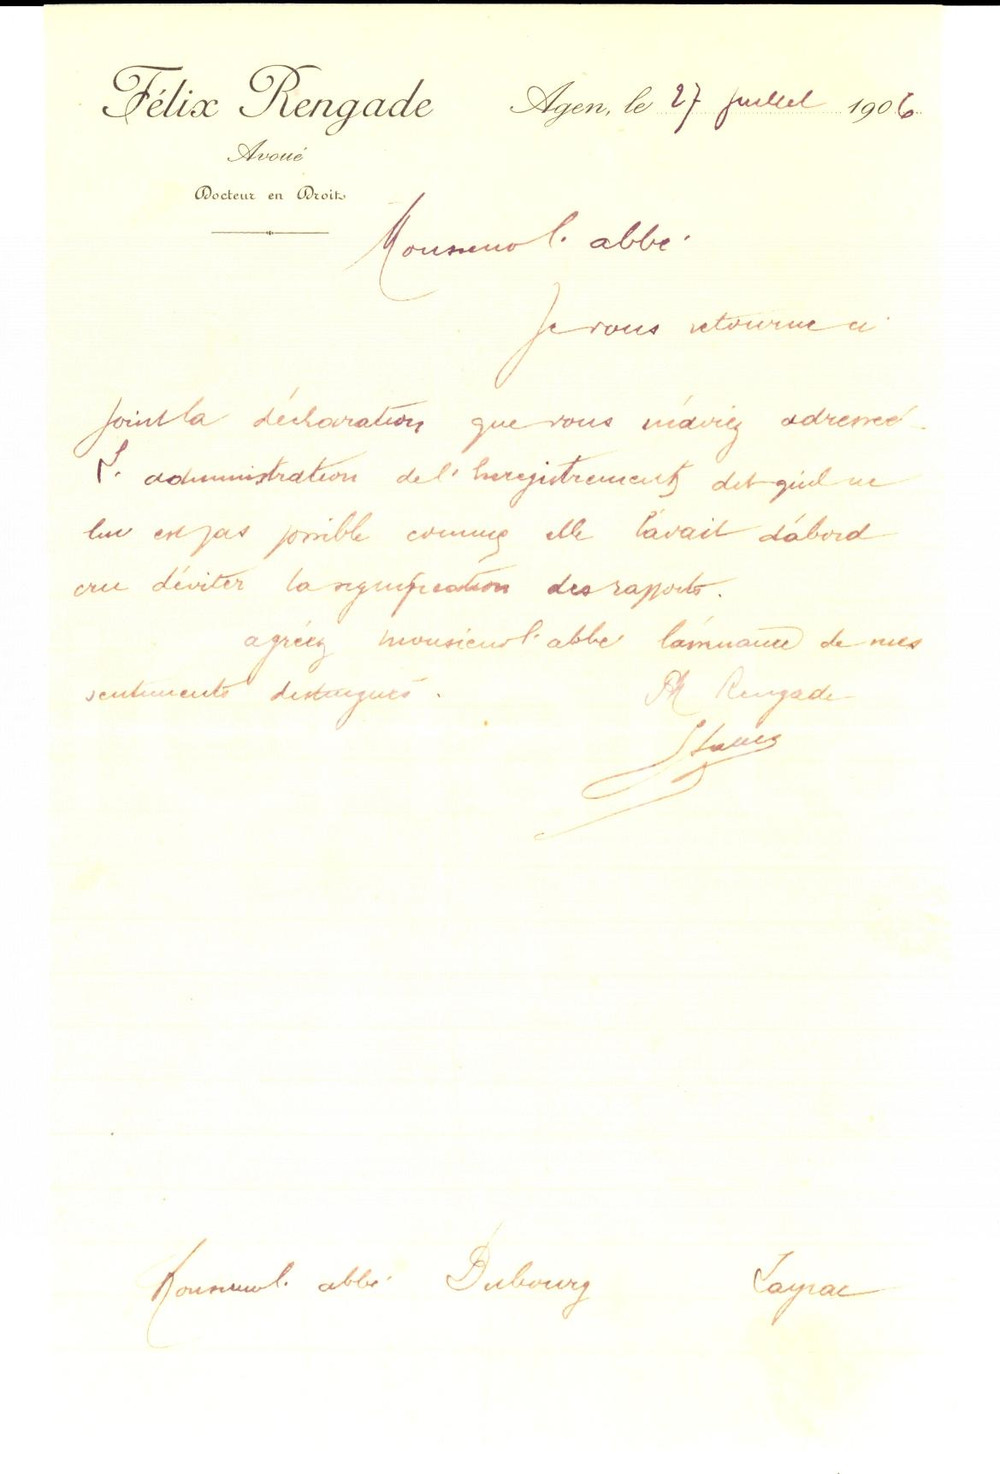 Félix Rengade
Agen, le 27 juillet 1906
Avoué
Docteur en Droit
Monsieur l'abbé
Je vous retourne ci
joint la déclaration que vous m'aviez adressée.
L'administration de l'Enregistrement dit qu'il ne
lui est pas possible comme elle l'avait d'abord
cru d'éviter la signification des rapports.
agréez monsieur l'abbé l'assurance de mes
sentiments distingués.
Rengade
Monsieur l'abbé Dubourg Layrac